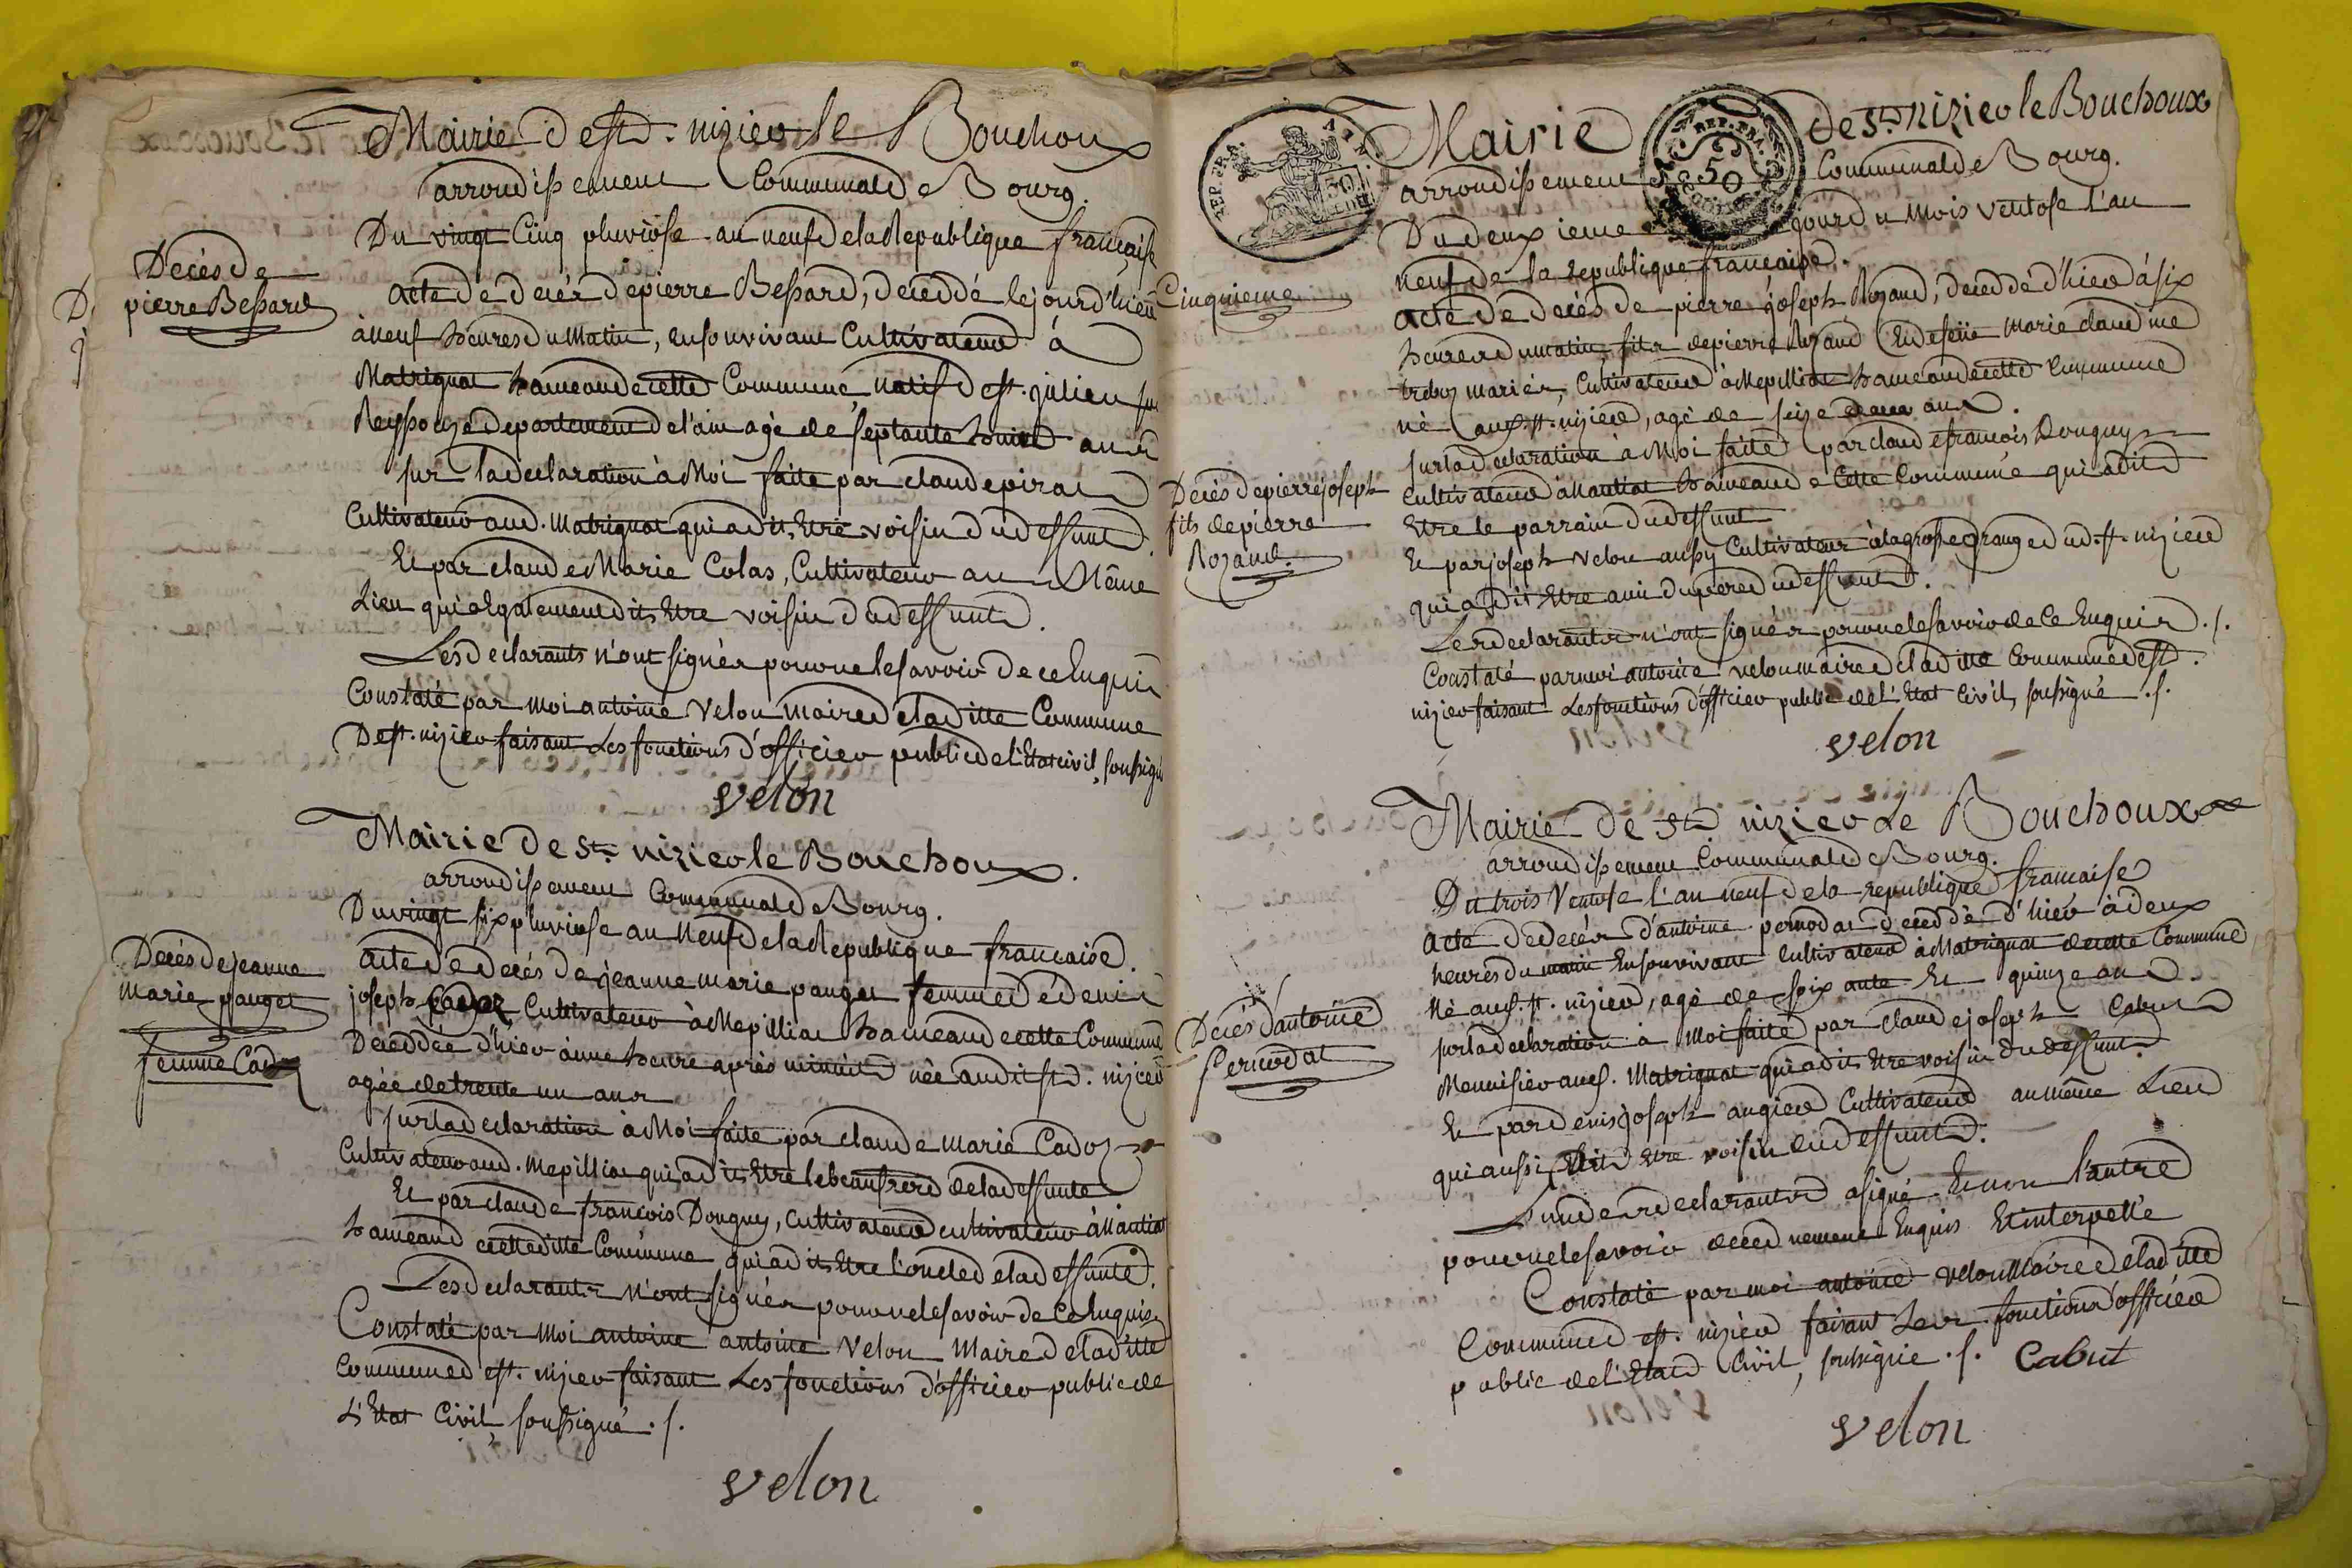 Mairie de st. nizier le Bouchoux
arrondissement Communal de Bourg.
Du vingt Cinq pluviôse an neuf de la Republique française
Decès de
pierre Bessard
acte de decés de pierre Bessard, deceddé le jour d'hier
à neuf heures du Matin, en son vivant Cultivateur à
Matrignat hameau de cette Commune, natif de st. julien sur
Reyssouze departement de l'ain agé de septante huit ans
sur la declaration à Moi faite par claude pirat
Cultivateur aud. Matrignat qui a dit Etre voisin du deffunt.
Et par claude Marie Colas, Cultivateur au Même
Lieu qui a Egalement dit Etre voisin du deffunt.
Les declarants n'ont signés pour ne le savoir de ce Enquis
Constaté par moi antoine Velon maire de la ditte Commune
De st. nizier faisant Les fonctions d'officier public de l'Etat civil, soussigné
velon
Mairie de st. nizier le Bouchoux.
arrondissement Communal de Bourg.
Du vingt six pluviose an Neuf de la Republique francaise.
Decès de jeanne
marie pauget
femme Cadoz
acte de decés de jeanne marie pauget femme de denis
joseph Cadoz Cultivateur à Mepilliat hameau de cette Commune
Deceddée d'hier à une heure après minuit née audit st. nizier
agée de trente un ans
sur la declaration à Moi faite par claude marie Cadoz
Cultivateur aud. Mepilliat qui a dit Etre le beaufrere de la deffunte
Et par claude francois Donguy, cultivateur cultivateur à Nantiat
hameau de cette ditte Commune qui a dit Etre l'oncle de la deffunte.
Les declarants n'ont signés pour ne le savoir de Ce Enquis
Constaté par Moi antoine antoine Velon Maire de la ditte
Commune de st. nizier faisant Les fonctions d'officier public de
L'Etat Civil, soussigné ./.
velon
REP. FRA.
REP. FRA.
50
Mairie de st. nizier le Bouchoux
arrondissement Communal de Bourg.
Du deuxieme jour du mois ventose l'an
neuf de la republique francaise.
Cinquieme
acte de decés de pierre joseph Rozand, deceddé d'hier à six
heures du matin, fils de pierre Rozand Et de feüe marie claudine
mariés, Cultivateur à Mepilliat hameau de cette Commune
né aud. st. nizier, agé de seize ans.
Decès de pierre joseph
fils de pierre
Rozand.
sur la declaration à Moi faite par claude francois Donguy
Cultivateur à Nantiat hameau de Cette Commune qui a dit
Etre le parrain du deffunt
Et par joseph Velon aussy Cultivateur à la grosse grange dud. st. nizier
qui a dit Etre ami du pere du deffunt.
Les declarants n'ont signés pour ne le savoir de Ce Enquis ./.
Constaté par moi antoine velon maire de la ditte Commune de st.
nizier faisant Les fonctions d'officier public de l'Etat Civil, soussigné ./.
velon
Mairie de st. nizier Le Bouchoux
arrondissement Communal de Bourg.
Du trois Ventose l'an neuf de la republique francaise
Decès d'antoine
pernodat
acte de decés d'antoine pernodat deceddé d'hier à deux
heures du matin En son vivant Cultivateur à Matrignat de cette Commune
Né aud. st. nizier, agé de soixante Et quinze ans.
sur la declaration à Moi faite par claude joseph Cabut
Menuisier aud. Matrignat qui a dit Etre voisin du deffunt.
Et par denis joseph augier Cultivateur au même Lieu
qui aussi dit Etre voisin du deffunt.
L'un des declarants a signé Et non l'autre
pour ne le savoir de ce dûement Enquis Et interpellé
Constaté par moi antoine velon Maire de la ditte
Commune de st. nizier faisant Les fonctions d'officier
public de l'Etat Civil, soussigné ./. Cabut
velon